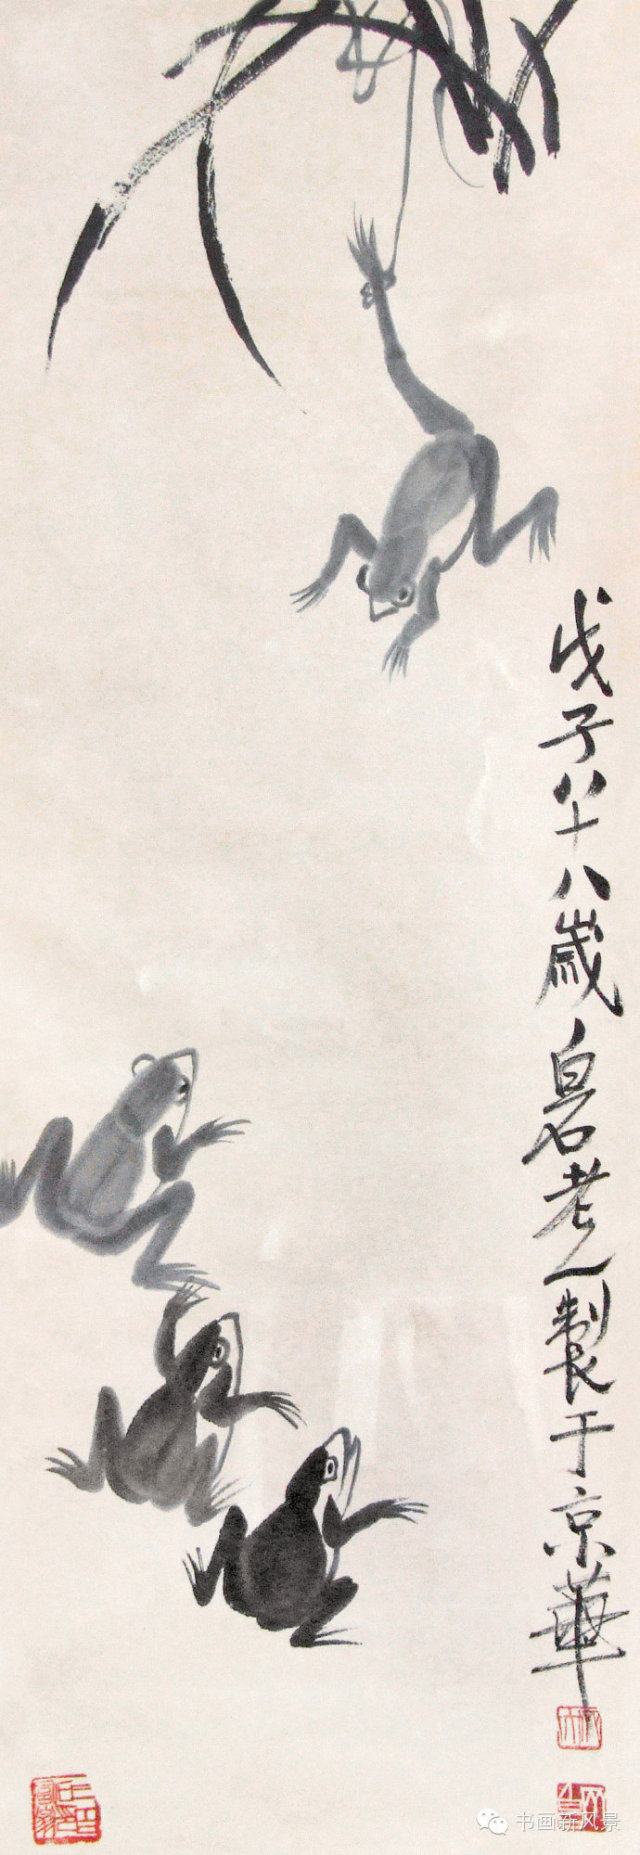 戊子八十八歲白石老人製于京華
书画新风景